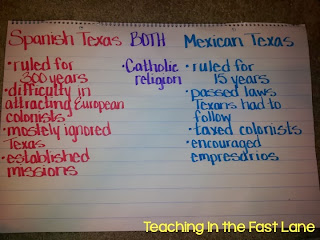 Spanish Texas BOTH Mexican Texas
• ruled for
300 years
• difficulty in
attracting European
colonists
• mostely ignored
Texas
• established
missions
• Catholic
religion
• ruled for
15 years
• passed laws
Texans had to
follow
• taxed colonists
• encouraged
empresarios
Teaching in the Fast Lane